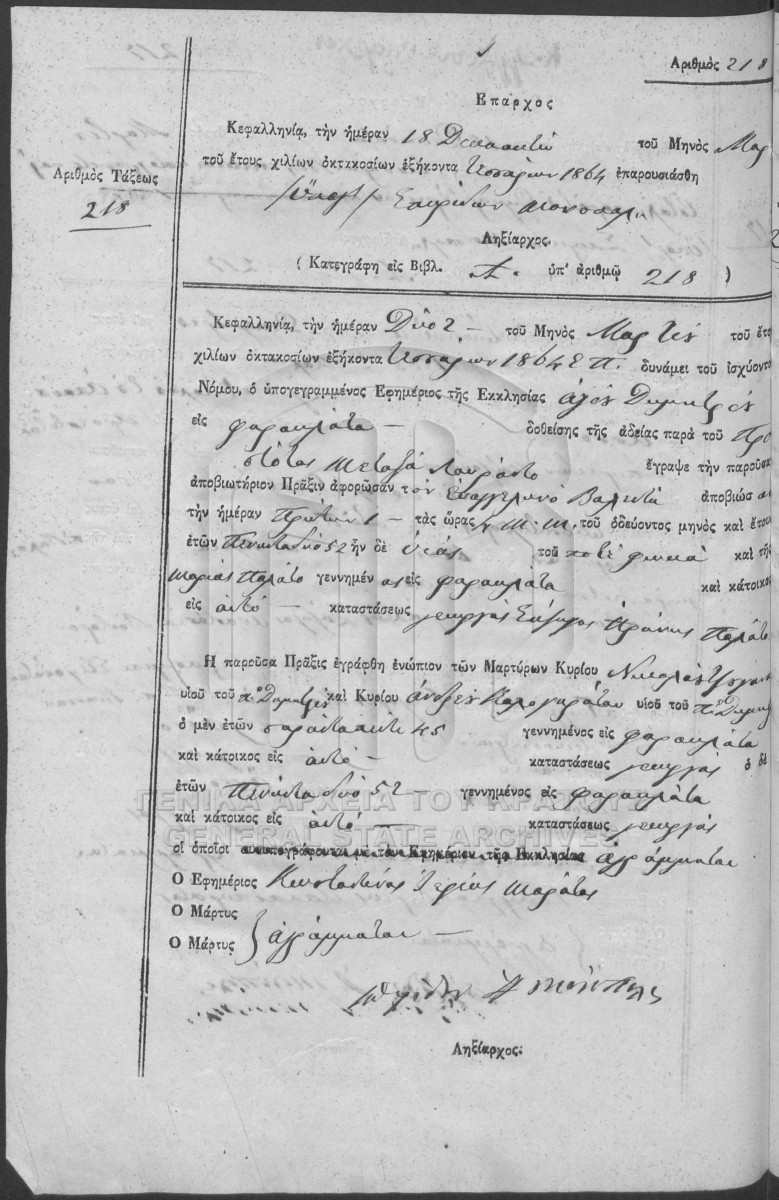 Αριθμὸς 218
Επαρχος
Κεφαλληνία, τὴν ἡμέραν 18 Δεκαοκτώ τοῦ Μηνὸς Μαρ
τοῦ ἔτους χιλίων ὀκτακοσίων ἑξήκοντα τεσσάρων 1864 ἐπαρουσιάσθη
Αριθμὸς Τάξεως
218
Σπυρίδων
Ληξίαρχος.
( Κατεγράφη εἰς Βιβλ. Α. ὑπ' ἀριθμῷ 218 )
Κεφαλληνία, τὴν ἡμέραν Δύο 2 – τοῦ Μηνὸς Μαρτίου τοῦ ἔτο
χιλίων ὀκτακοσίων ἑξήκοντα τεσσάρων 1864 Ε. Π. δυνάμει τοῦ ἰσχύοντο
Νόμου, ὁ ὑπογεγραμμένος Ἐφημέριος τῆς Ἐκκλησίας ἁγίου Δημητρίου
εἰς φαρακλάτα – δοθείσης τῆς ἀδείας παρὰ τοῦ Πρ
Μεταξᾶ Λουράντο ἔγραψε τὴν παροῦσα
ἀποβιωτήριον Πρᾶξιν ἀφορῶσαν τον Ευαγγελινό Βαλεντή ἀποβιώσαν
τὴν ἡμέραν Πρώτην 1 – τὰς ὥρας 4 Μ. Μ. τοῦ ὁδεύοντος μηνὸς καὶ ἔτου
ἐτῶν πενηνταδύο 52 ἦν δὲ υἱός τοῦ ποτέ φωκά καὶ τῆς
Μαρίας Παλάτο γεννημένος εἰς φαρακλάτα καὶ κάτοικος
εἰς αυτό – καταστάσεως γεωργός Σύζυγος Παλάτο
Η παροῦσα Πρᾶξις ἐγράφθη ἐνώπιον τῶν Μαρτύρων Κυρίου Νικολάου
υἱοῦ τοῦ π.ο Δημητρίου καὶ Κυρίου ἀνδρέου Καλογηράτου υἱοῦ τοῦ π.ο Δημη
ὁ μὲν ἐτῶν σαράντα πέντε 45 γεννημένος εἰς φαρακλάτα
καὶ κάτοικος εἰς αυτό – καταστάσεως γεωργός ὁ δὲ
ἐτῶν πενήντα δύο 52 – γεννημένος εἰς φαρακλάτα
καὶ κάτοικος εἰς αυτό – καταστάσεως γεωργός
οἱ ὁποῖοι συνυπογράφονται μὲ τὸν Εφημέριον τῆς Εκκλησίας ἀγράμματοι
Ο Ἐφημέριος Κωνσταντίνος Ἱερεύς Μαράτος
Ο Μάρτυς
Ο Μάρτυς } ἀγράμματοι –
Ληξίαρχος.
ΓΕΝΙΚΑ ΑΡΧΕΙΑ ΤΟΥ ΚΡΑΤΟΥΣ
GENERAL STATE ARCHIVES